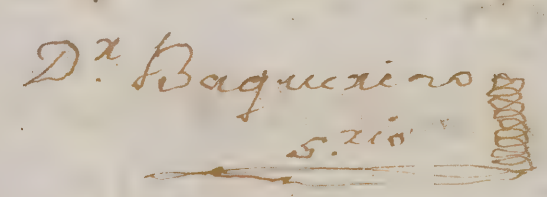 D.ʳ Baquerizo
S.ʳⁱᵒ